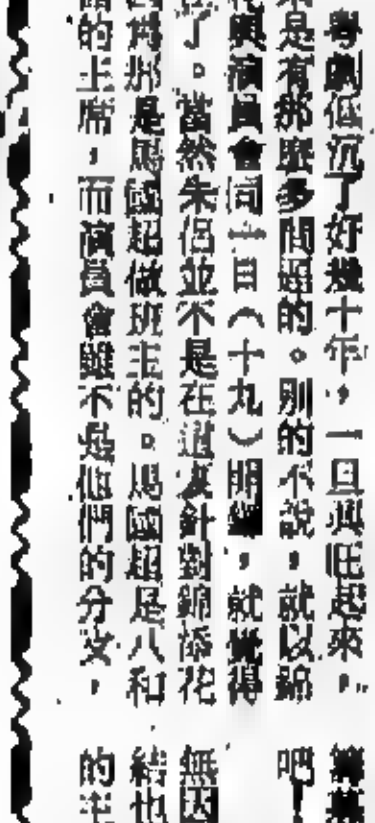 粵劇低沉了好幾十年,一旦興旺起來,
是有那麼多問題的。別的不說,就以錦
與演員會同一日(十九)開鑼,就覺得
了。當然朱侶並不是在這裏針對錦添花
那是馬國超做班主的。馬國超是八和
的主席,而演員會雖不是他們的分支,
吧!
無因
結也
的主